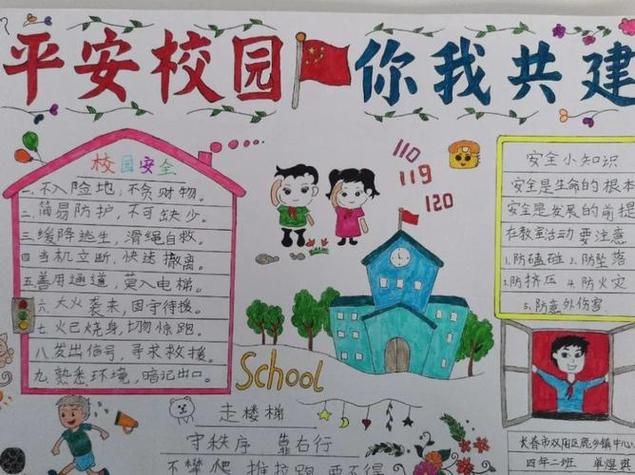 平安校园 你我共建
校园安全
一、不入险地,不贪财物。
二、简易防护,不可缺少。
三、缓降逃生,滑绳自救。
四、当机立断,快速撤离。
五、善用通道,莫入电梯。
六、大火袭来,固守待援。
七、火已烧身,切勿惊跑。
八、发出信号,寻求救援。
九、熟悉环境,暗记出口。
110
119
120
School
安全小知识
安全是生命的根本
安全是发展的前提
在教室活动要注意
1.防磕碰 2.防坠落
3.防挤压 4.防火灾
5.防意外伤害
走楼梯
守秩序 靠右行
不攀爬 推拉跑 要不得
长春市双阳区鹿乡镇中心
四年二班 单煜